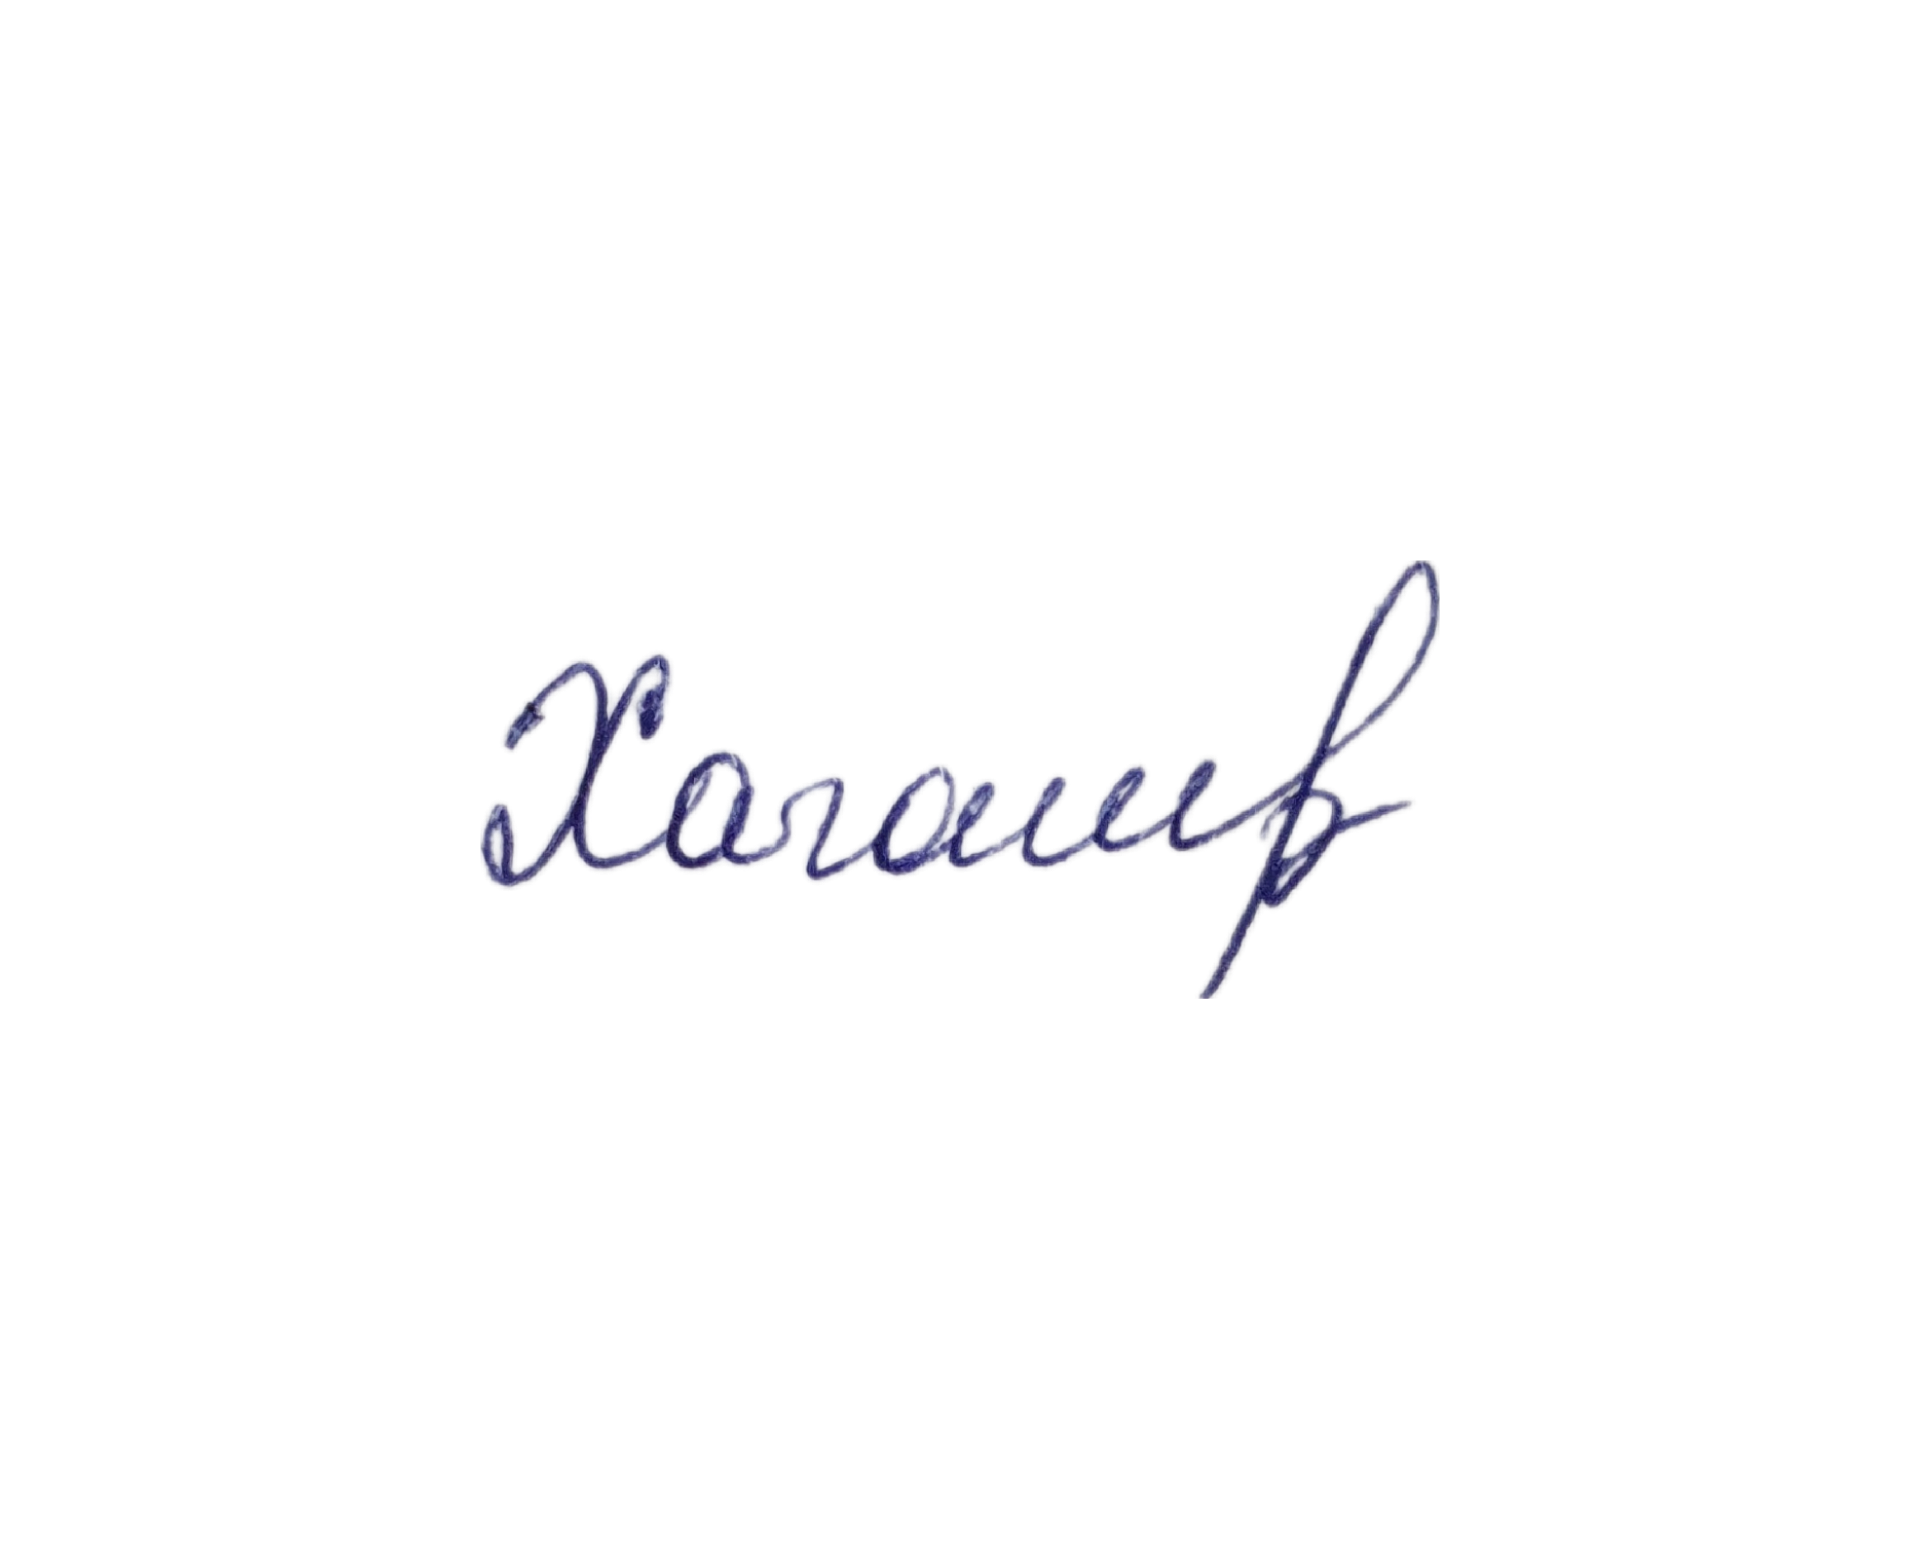 Хагашр